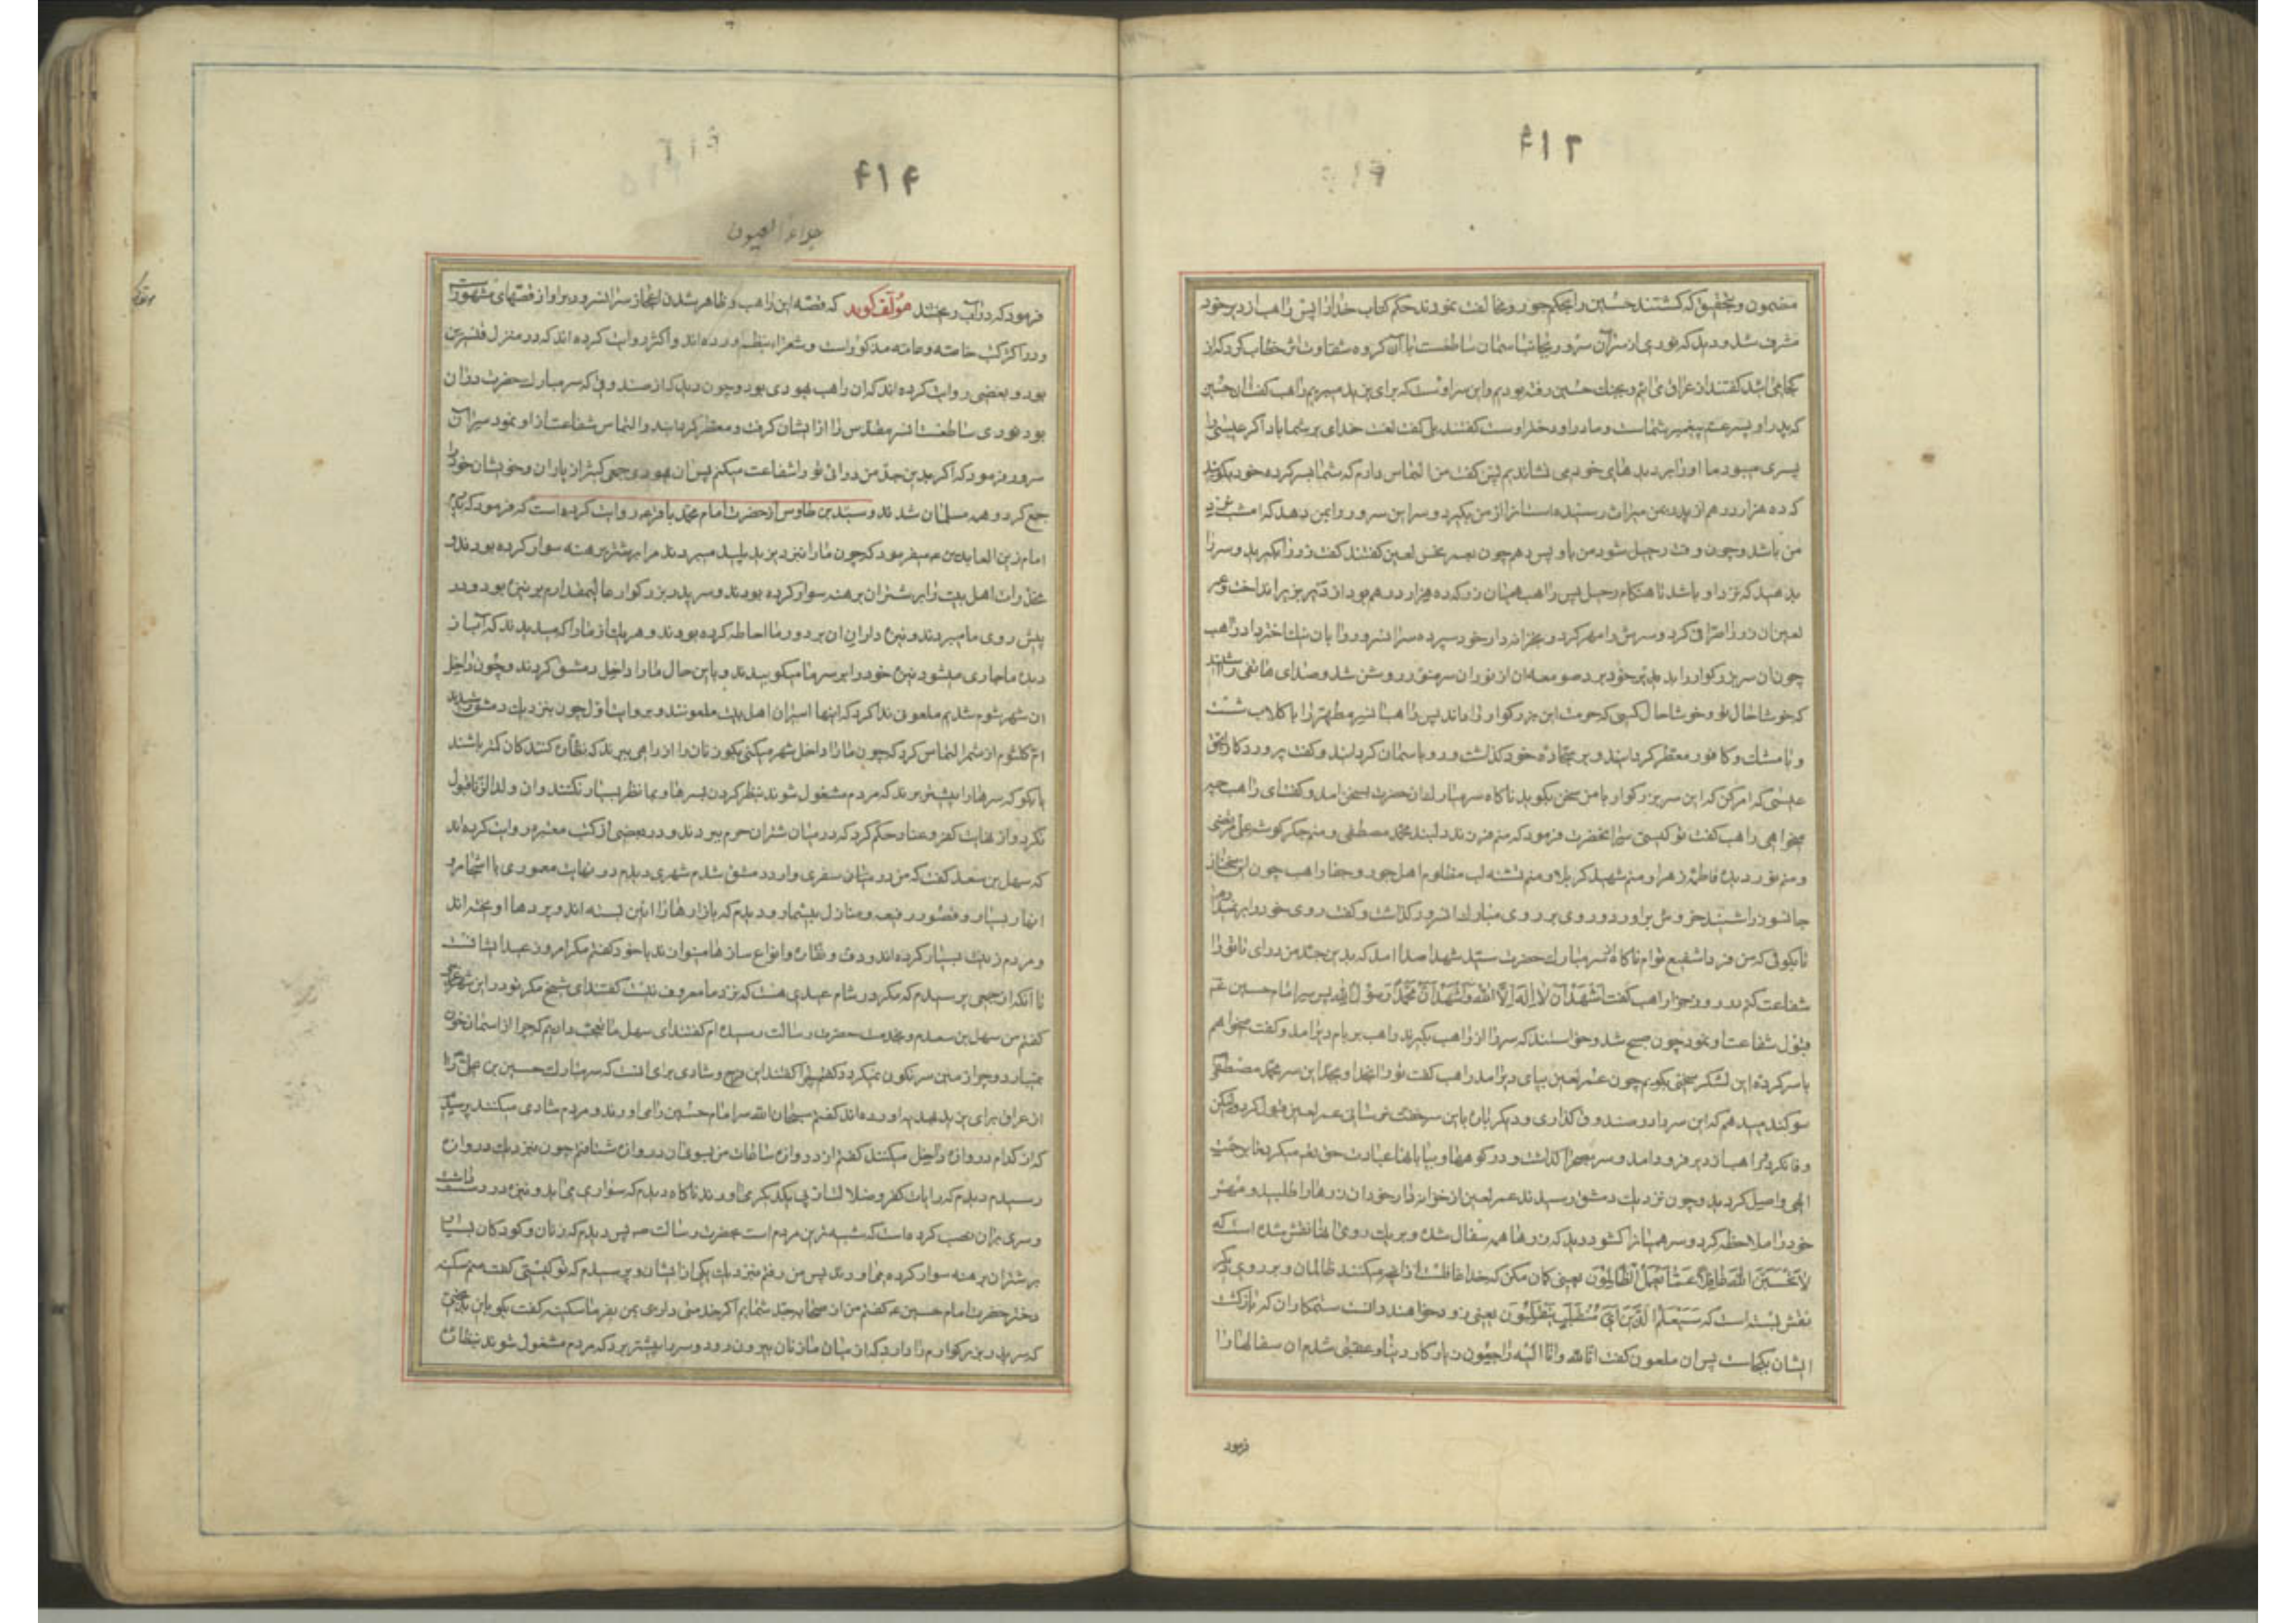 ۴۱۳
مضمون و تحقیق که کشتند حسین را بحکم جور و مخالفت نمودند حکم کتاب خدا را پس راهب از دیر خود
مشرف شد و دید که نوری از سر آن سرور بجانب اسمان ساطعست با آن کروه شقاوت اثر خطاب کرد که از
کجا می‌آئید کفتند از عراق می‌ائیم و بجنک حسین رفته بودیم و این سر اوست که برای یزید میبریم راهب کفت ان حسین
که پدر او پسر عم پیغمبر شماست و مادر او دختر اوست کفتند بلی کفت لعنت خدای بر شما باد اکر عیسی را
پسری میبود ما او را بر دیدهای خود می نشاندیم پس کفت من التماس دارم که شما بسرکرده خود بکوئید
که ده هزار درهم از پدر بمن میراث رسیده است انرا از من بکیرد و سر این سرور را بمن دهد که امشب نزد
من باشد و چون وقت رحیل شود من باو پس دهم چون بعمر نحس لعین کفتند کفت زر را بکیرید و سر را
بدهید که نزد او باشد تا هنکام رحیل پس راهب همیان زر که ده هزار درهم بود از دیر بزیر انداخت و عمر
لعین ان زر را صرافی کرد و سرش را مهر کرد و بخزانه‌دار خود سپرد و سر انسرور را بان نیک اختر داد راهب
چون ان سر بزرکوار را بدیر خود برد صومعه ان از نور ان سر منور روشن شد و صدای هاتفی را شنید
که خوشا حال تو و خوشا حال کسی که حرمت این بزرکوار را داند پس راهب انسر مطهر را با کلاب شست
و با مشک و کافور معطر کردانید و بر سجاده خود کذاشت و رو باسمان کردانید و کفت پروردکارا بحق
عیسی که امر کن که این سر بزرکوار با من سخن بکوید ناکاه سر مبارک ان حضرت بسخن امد و کفت ای راهب چه
میخواهی راهب کفت تو کیستی سر انحضرت فرمود که منم فرزند دلبند محمد مصطفی و منم جکرکوشه علی مرتضی
و منم نور دیده فاطمه زهرا و منم شهید کربلا و منم تشنه لب مظلوم اهل جور و جفا راهب چون این سخنان
جانسوز را شنید خروش براورد و روی بر روی مبارک انسرور کذاشت و کفت روی خود را بر نمیدارم
تا بکوئی که من فردا شفیع توام ناکاه از سر مبارک حضرت سید شهدا صدا امد که بدین جدم من در ای تا تو را
شفاعت کنم در روز جزا راهب کفت اَشْهَدُ اَنْ لا اِلهَ اِلَّا اللهُ وَ اَشْهَدُ اَنَّ مُحَمَّداً رَسُولُ اللهِ پس سر امام حسین
قبول شفاعت او نمود چون صبح شد و خواستند که سر را از راهب بکیرند راهب بر بام دیر امد و کفت میخواهم
با سرکرده این لشکر سخنی بکویم چون عمر لعین بپای دیر امد راهب کفت تو را بخدا و بحق این سر محمد مصطفی
سوکند میدهم که این سر را در صندوق کذاری و دیکر بان باین سر خفت نرسانی عمر لعین قبول کرد ولیکن
وفا نکرد راهب از دیر فرود امد و سر بصحرا کذاشت و در کوهها و بیابانها عبادت حق تعم میکرد تا برحمت
الهی واصل کردید و چون نزدیک دمشق رسیدند عمر لعین از خزانه‌دار خود ان زرها را طلبید و مهر
خود را ملاحظه کرد و سر همیان را کشود دید که زرها همه سفال شده و بر یک روی انها نقش شده است که
لا تَحْسَبَنَّ اللهَ غافِلاً عَمَّا یَعْمَلُ الظَّالِمُونَ یعنی کمان مکن که خدا غافلست از انچه میکنند ظالمان و بر روی دیکر
نقش بسته است که سَیَعْلَمُ الَّذینَ اَیَّ مُنْقَلَبٍ یَنْقَلِبُونَ یعنی زود خواهند دانست ستمکاران که بازکشت
ایشان بکجاست پس ان ملعون کفت انا لله و انا الیه راجعون زیان کار دنیا و عقبی شدم ان سفالها را
فرمود
۴۱۴
جلاء العیون
فرمود که در آب ریختند مؤلف کوید که قصه این راهب و ظاهر شدن اعجاز سر انسرور بر او از قصهای مشهور است
و در اکثر کتب خاصه و عامه مذکور است و شعرا بنظم اورده‌اند و اکثر روایت کرده‌اند که در منزل قنسرین
بود و بعضی روایت کرده‌اند که ان راهب یهودی بود و چون دید که از صندوقی که سر مبارک حضرت در ان
بود نوری ساطعست انسر مقدس را از ایشان کرفت و معطر کردانید و التماس شفاعت از او نمود سر ان
سرور فرمود که اکر بدین جدم من درائی تو را شفاعت میکنم پس ان یهودی جمعی کثیر از یاران و خویشان خود را
جمع کرد و همه مسلمان شدند و سید بن طاوس از حضرت امام محمد باقر ع روایت کرده است که فرمود که پدرم
امام زین العابدین ع میفرمود که چون ما را بنزد یزید پلید میبردند مرا بر شتر برهنه سوار کرده بودند و
مخدرات اهل بیت را بر شتران برهنه سوار کرده بودند و سر پدر بزرکوار عالیمقدارم بر نیزه بود و در
پیش روی ما میبردند و نیزه داران ان بر دور ما احاطه کرده بودند و هر یک از ما را که میدیدند که آب از
دیده ما جاری میشود نیزه خود را بر سر ما میکوبیدند و باین حال ما را داخل دمشق کردند و چون داخل
ان شهر شوم شدیم ملعونی ندا کرد که اینها اسیران اهل بیت ملعونند و بروایت اول چون بنزدیک دمشق رسیدند
ام کلثوم از شمر التماس کرد که چون ما را داخل شهر میکنی بکو زنان را از راهی ببرند که نظاره کنندکان کمتر باشند
یا بکو که سرها را پیشتر برند که مردم مشغول شوند بنظر کردن سرها و بما نظر بسیار نکنند و ان ولدالزنا قبول
نکرد و از غایت کفر و عناد حکم کرد که در میان شتران حرم ببردند و در بعضی از کتب معتبره روایت کرده‌اند
که سهل بن سعد کفت که من در میان سفری وارد دمشق شدم شهری دیدم در نهایت معموری با اشجار و
انهار بسیار و قصور رفیعه و منازل بیشمار و دیدم که بازارها را ائین بسته‌اند و پردها اویخته‌اند
و مردم زینت بسیار کرده‌اند و دف و نقاره و انواع سازها مینوازند با خود کفتم مکر امروز عید ایشانست
تا انکه از جمعی پرسیدم که مکر در شام عیدی هست که نزد ما معروف نیست کفتند ای شیخ مکر تو در این شهر غریبی
کفتم من سهل بن سعدم و بخدمت حضرت رسالت رسیده‌ام کفتند ای سهل ما تعجب داریم که چرا از اسمان خون
نمیبارد و چرا زمین سرنکون نمیکردد کفتم چرا کفتند این فرح و شادی برای انست که سر مبارک حسین بن علی را
از عراق برای یزید پلید اورده‌اند کفتم سبحان الله سر امام حسین را می‌اورند و مردم شادی میکنند پرسیدم
که از کدام دروازه داخل میکنند کفتند از دروازه ساعات من بسوی ان دروازه شتافتم چون بنزدیک دروازه
رسیدم دیدم که رایات کفر و ضلالت از پی یکدیکر می‌اورند ناکاه دیدم که سواری می‌اید و نیزه در دست داشت
و سری بر ان نصب کرده است که شبیه‌ترین مردم است بحضرت رسالت ص پس دیدم که زنان و کودکان بسیار
بر شتران برهنه سوار کرده می‌اورند پس من رفتم بنزدیک یکی از ایشان و پرسیدم که تو کیستی کفت منم سکینه
دختر حضرت امام حسین ع کفتم من از صحابه جد شمایم اکر خدمتی داری بمن بفرما سکینه کفت بکو باین بدبختی
که سر پدر بزرکوارم را دارد که از میان ما زنان بیرون رود و سر را پیشتر برد که مردم مشغول شوند بنظاره